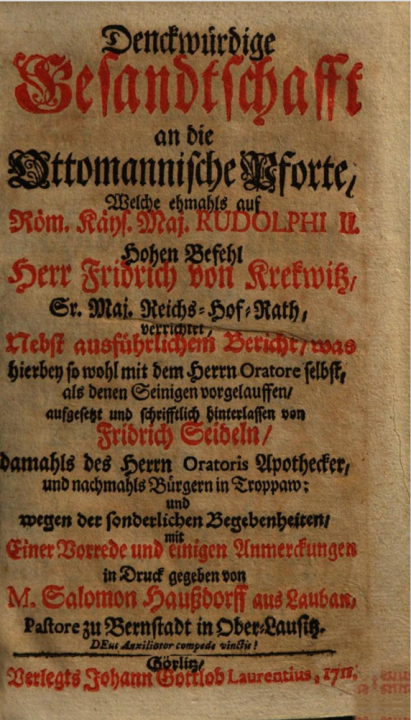 Denckwürdige
Gesandtschafft
an die
Ottomannische Pforte,
Welche ehmahls auf
Röm. Käys. Maj. RUDOLPHI II.
Hohen Befehl
Herr Fridrich von Krekwitz,
Sr. Maj. Reichs-Hof-Rath,
verrichtet,
Nebst ausführlichem Bericht, was
hierbey so wohl mit dem Herrn Oratore selbst,
als denen Seinigen vorgelauffen/
aufgesetzt und schrifftlich hinterlassen von
Fridrich Seideln/
damahls des Herrn Oratoris Apothecker,
und nachmahls Bürgern in Troppaw:
und
wegen der sonderlichen Begebenheiten/
mit
Einer Vorrede und einigen Anmerckungen
in Druck gegeben von
M. Salomon Haußdorff aus Lauban,
Pastore zu Bernstadt in Ober-Lausitz.
DEus Auxiliator compede vinctis!
Görlitz/
Verlegts Johann Gottlob Laurentius, 1711.